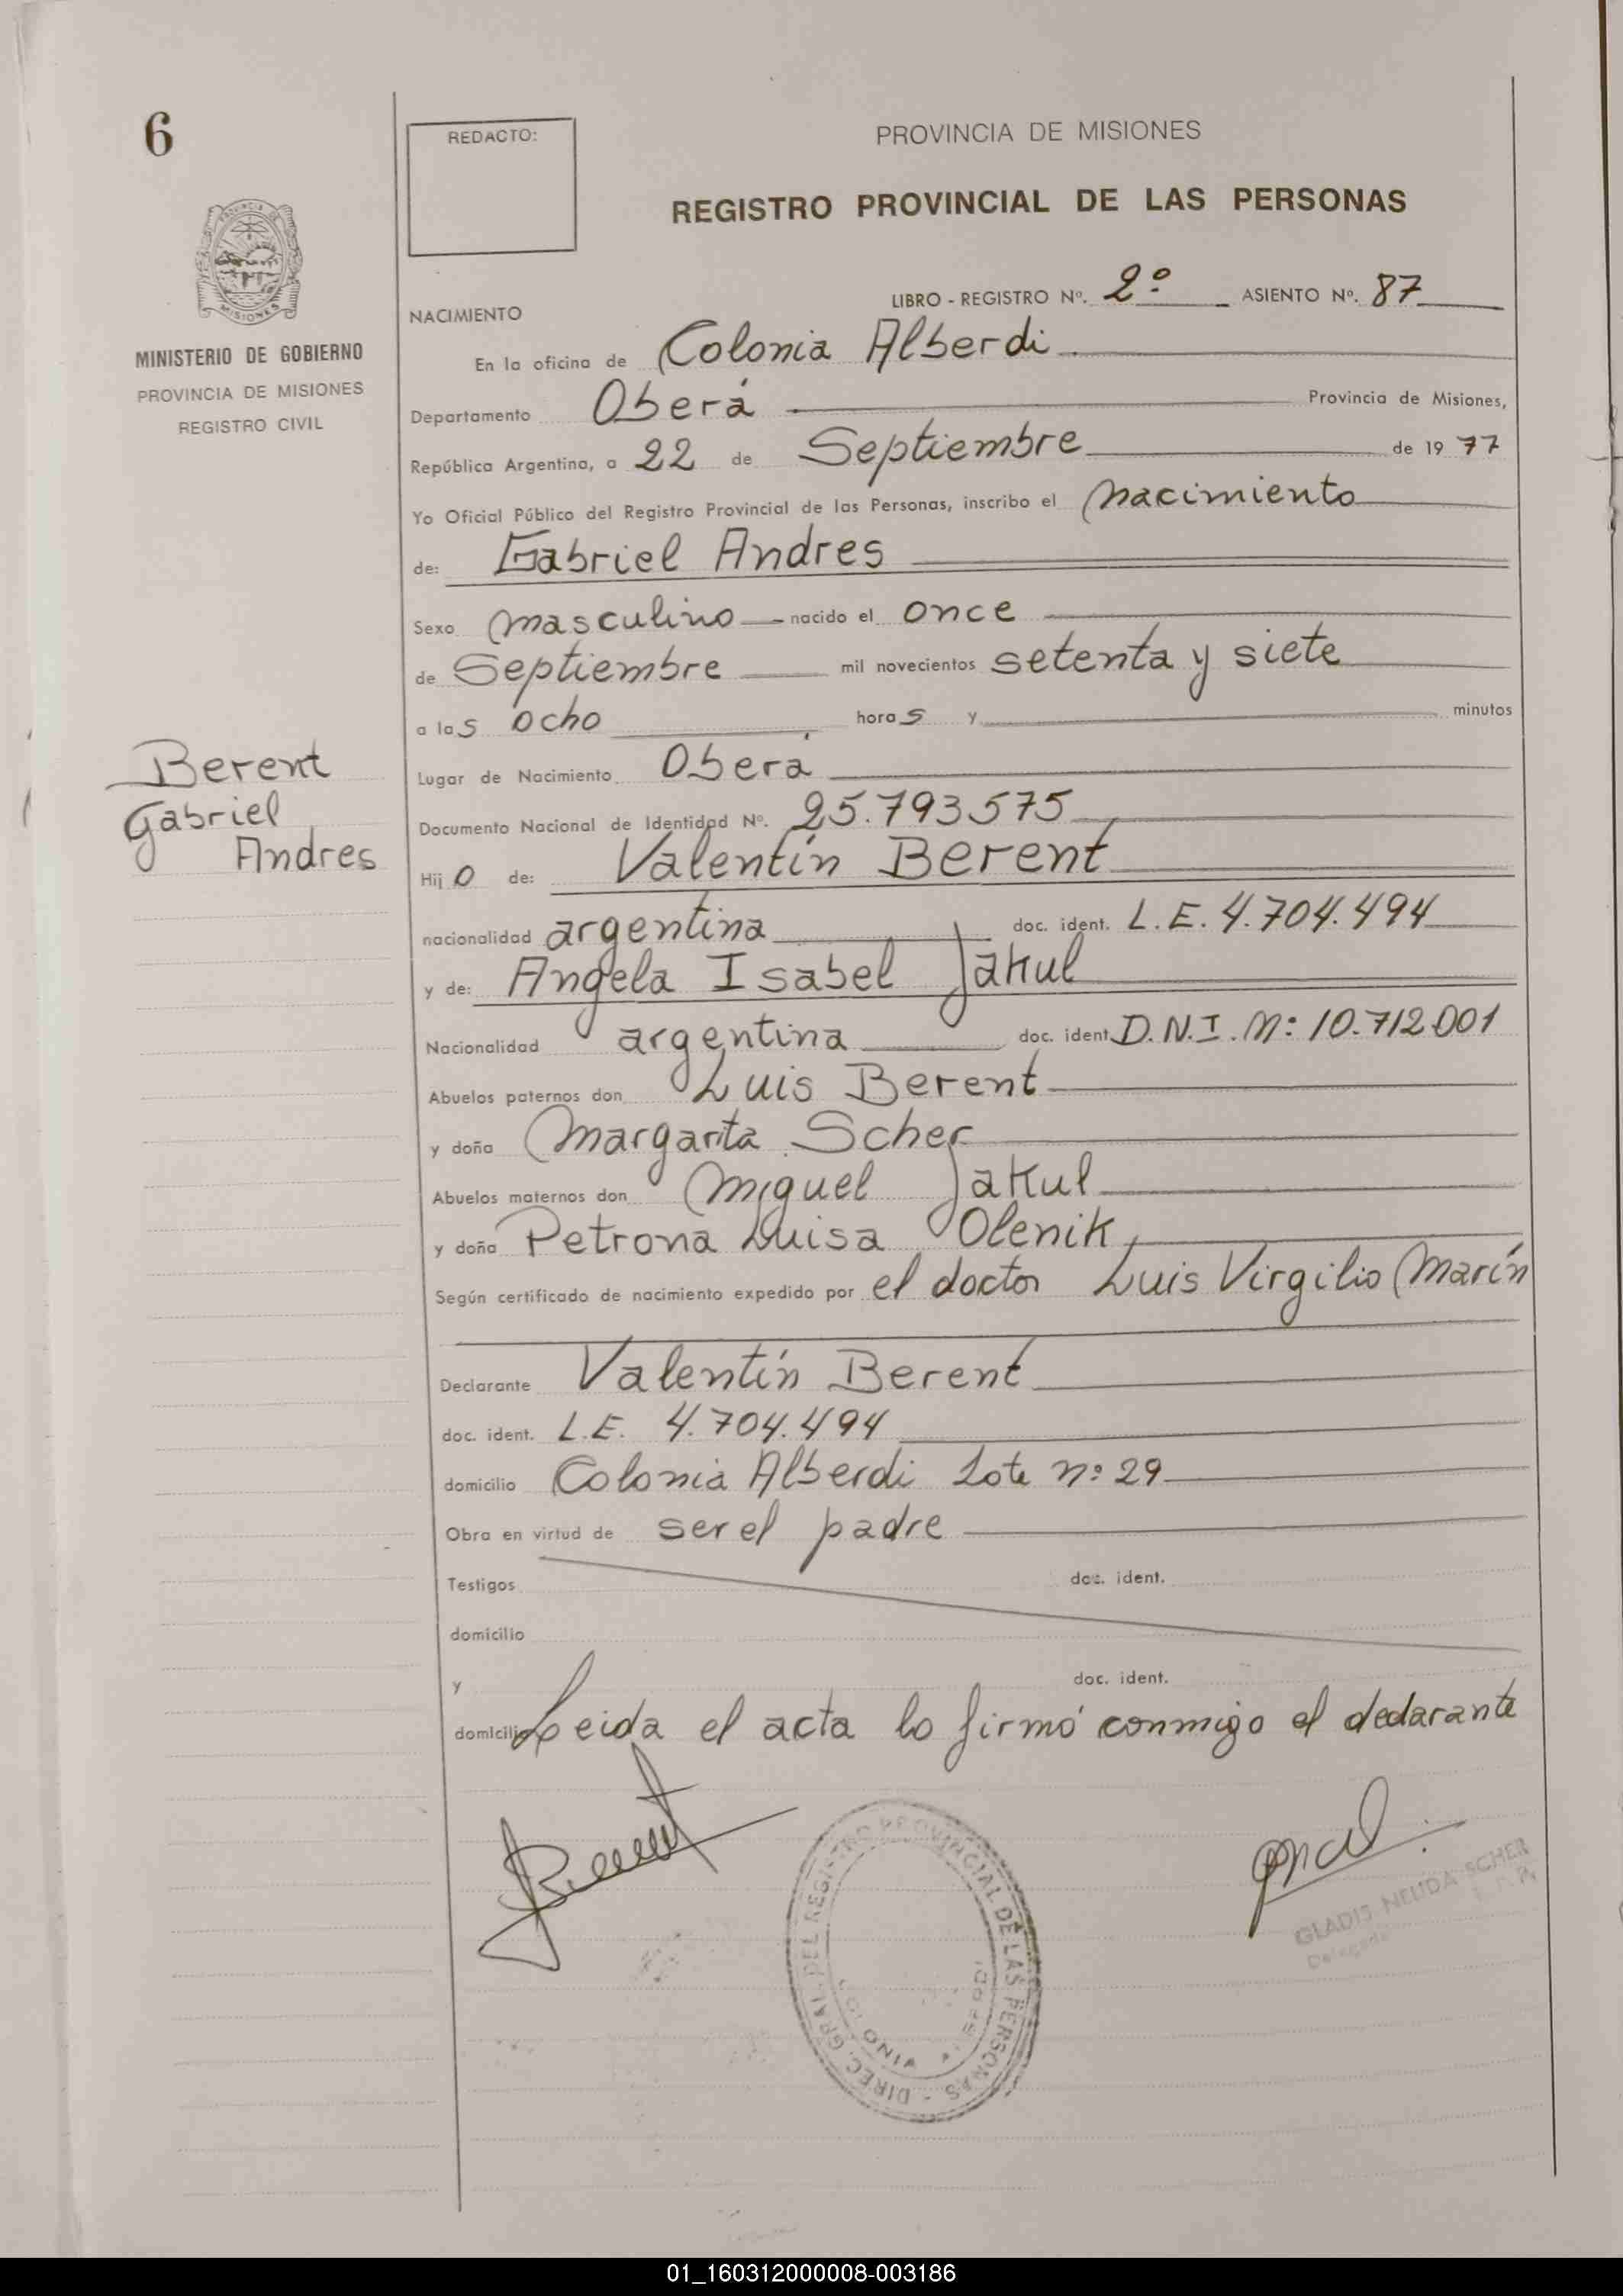 6
REDACTO:
PROVINCIA DE MISIONES
REGISTRO PROVINCIAL DE LAS PERSONAS
MISIONES
MINISTERIO DE GOBIERNO
PROVINCIA DE MISIONES
REGISTRO CIVIL
LIBRO - REGISTRO Nº. 2º ASIENTO Nº. 87
NACIMIENTO
En la oficina de Colonia Alberdi.
Departamento Oberá Provincia de Misiones,
República Argentina, a 22 de Septiembre de 1977
Yo Oficial Público del Registro Provincial de las Personas, inscribo el nacimiento
de: Gabriel Andres
Sexo masculino nacido el once
de Septiembre mil novecientos setenta y siete
a las ocho horas y minutos
Lugar de Nacimiento Oberá
Berent
Gabriel
Andres
Documento Nacional de Identidad Nº. 25.793.575
Hijo de: Valentín Berent
nacionalidad argentina doc. ident. L.E. 4.704.494
y de: Angela Isabel Jakul
Nacionalidad argentina doc. ident. D.N.I. Nº: 10.712.001
Abuelos paternos don Luis Berent
y doña Margarita Scher
Abuelos maternos don Miguel Jakul
y doña Petrona Luisa Olenik
Según certificado de nacimiento expedido por el doctor Luis Virgilio Marín
Declarante Valentín Berent
doc. ident. L.E. 4.704.494
domicilio Colonia Alberdi Lote nº 29
Obra en virtud de ser el padre
Testigos doc. ident.
domicilio
y doc. ident.
domicilio Leida el acta lo firmó conmigo el declarante
Berent
DIREC. GRAL. DEL REGISTRO PROVINCIAL DE LAS PERSONAS -
COLONIA ALBERDI
GLADIS NELIDA SCHER
Delegada
01_160312000008-003186